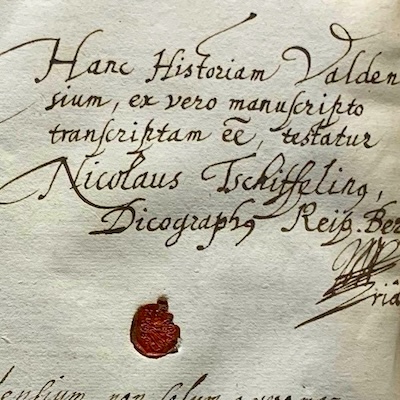 Hanc Historiam Valden
sium, ex vero manuſcripto
tranſcriptam eē, teſtatur
Nicolaus Tschiffeling,
Dicographꝰ Reip. Ber
ria
non ſolum